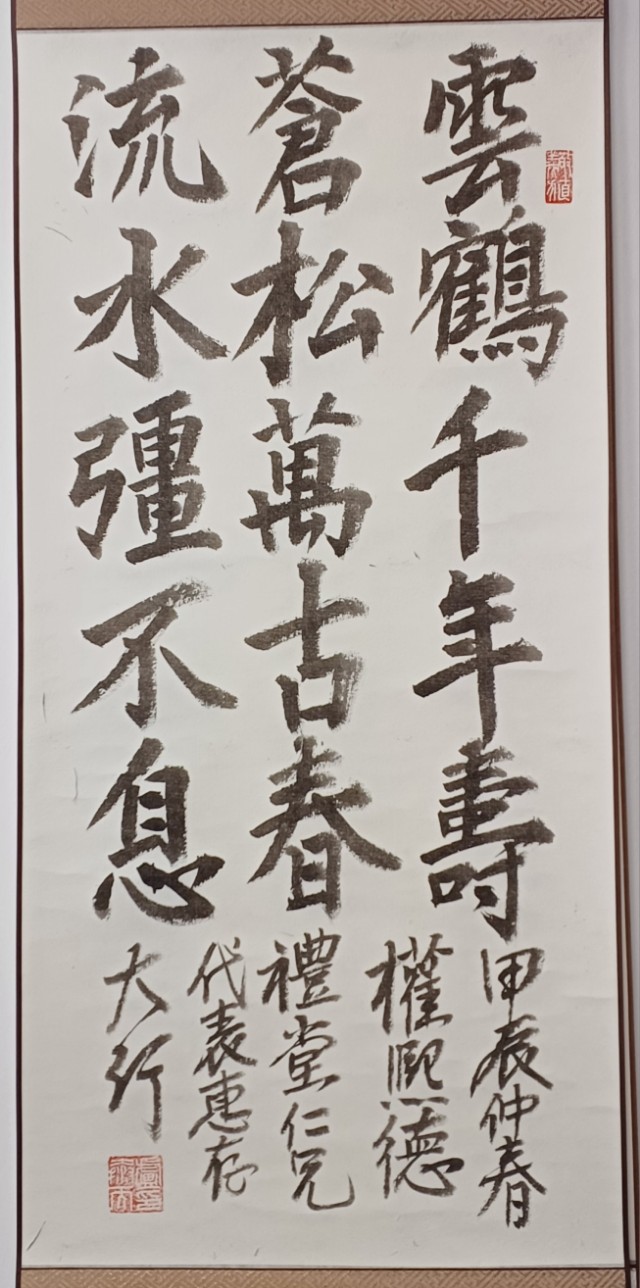 雲鶴千年壽
蒼松萬古春
流水彊不息
甲辰仲春
權熙德
禮堂仁兄
代表惠存
大行